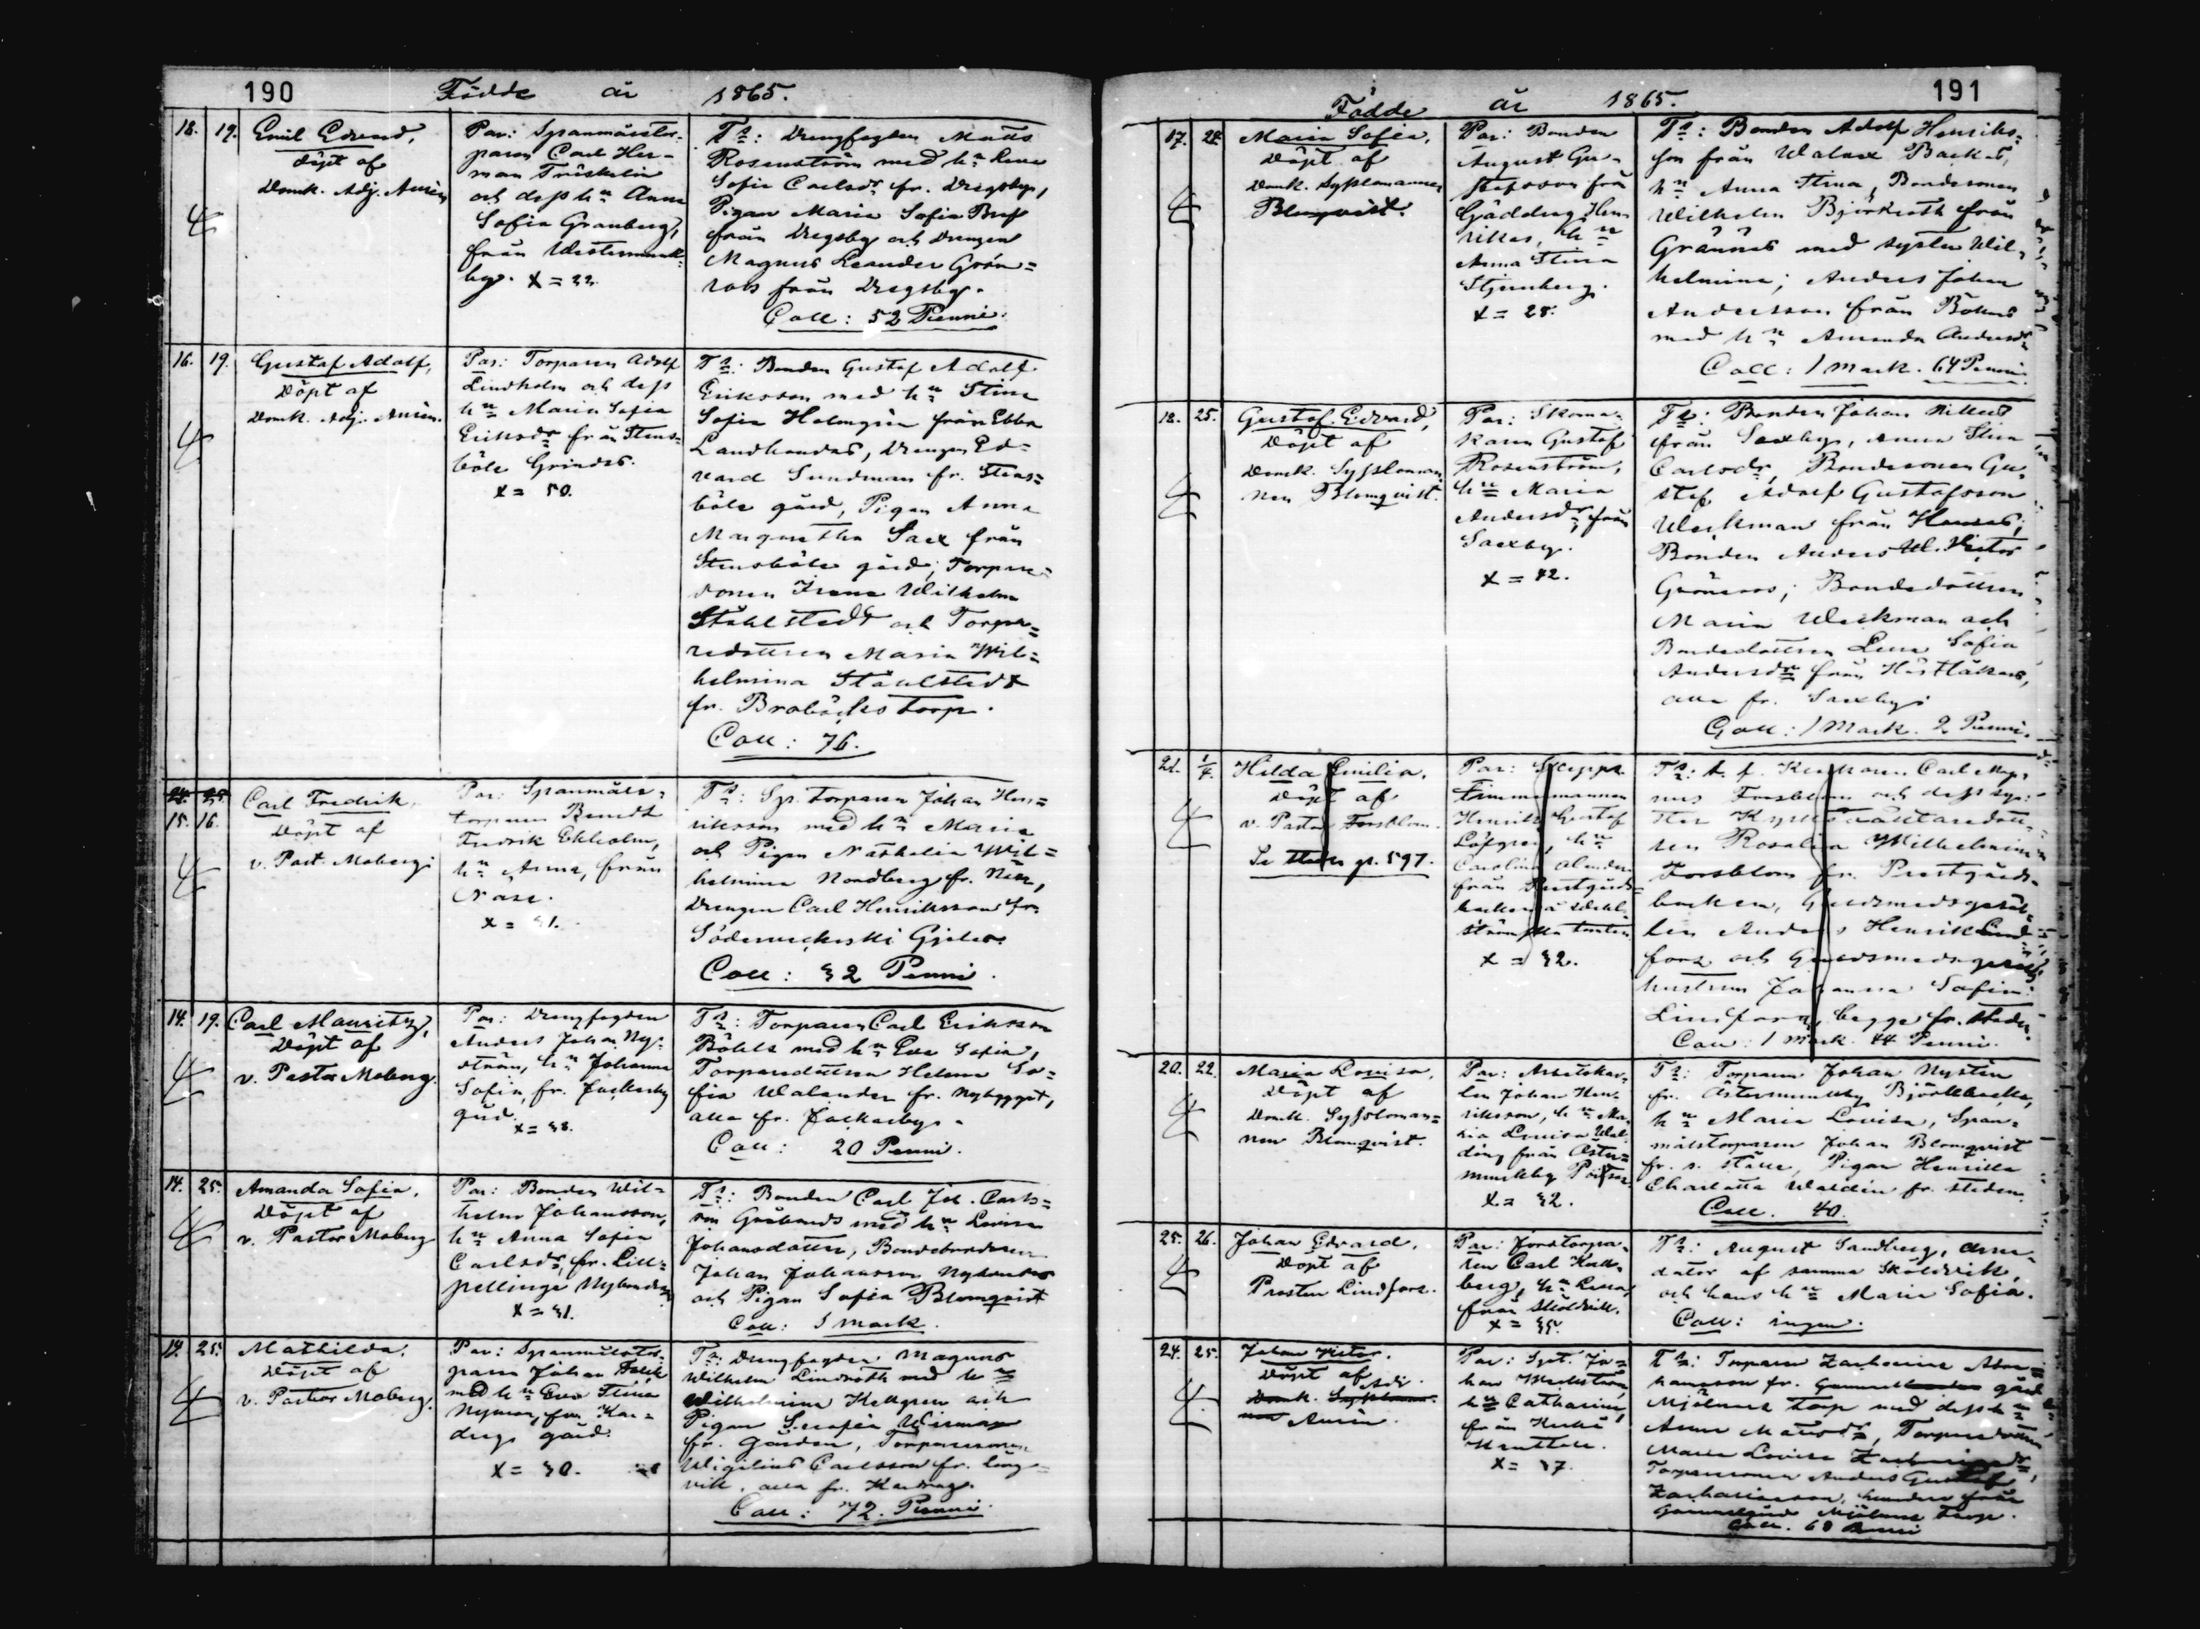 190 Födde år 1865.
18. 19. Emil Edvard,
döpt af
Domk. Adj. Aurén
Par: Spanmåls-
paren Carl Her-
man Träskelin
och dess hu Anna
Sofia Granberg,
från Westermunk-
by. x = 22.
Tr: Drengfogden Matts
Rosenström med hu Lena
Sofia Carlsdr fr. Dregsby,
Pigan Maria Sofia
från Dregsby och Drengen
Magnus Leander Grön=
roos från Dregsby.
Coll: 52 Penni.
16. 19. Gustaf Adolf,
Döpt af
Domk. Adj. Aurén.
Par: Torparen Adolf
Lindholm och dess
hu Maria Sofia
Eriksdr från Stens-
böle Grindas.
x = 50.
Tr: Bonden Gustaf Adolf
Eriksson med hu Stina
Sofia Holmgren från Ebbo
Landbondas, Drengen Ed=
vard Sundman fr. Stens=
böle gård, Pigan Anna
Margaretha Sax från
Stensböle gård, Torpare=
sonen Frans Wilhelm
Ståhlstedt och Torpa=
redottren Maria Wil=
helmina Ståhlstedt
fr. Brobäcks torp.
Coll: 76.
15. 16. Carl Fredrik,
Döpt af
v. Past. Moberg.
Par: Spanmåls-
torparen Berndt
Fredrik Ekholm,
hu Anna, från
Näse.
x = 41.
Tr: Sp. torparen Johan Hen=
riksson med hu Maria
och Pigan Nathalia Wil=
helmina Nordberg fr. Näse,
Drengen Carl Henriksson fr.
Söderveckoski
Coll: 32 Penni.
14. 19. Carl Mauritz,
Döpt af
v. Pastor Moberg.
Par: Drengfogden
Anders Johan Ny-
ström, hu Johanna
Sofia, fr. Jackarby
gård.
Tr: Torparen Carl Eriksson
Böhle med hu Eva Sofia,
Torparedottren Helena So=
fia Walander fr. Nybygget,
alla fr. Jackarby.
Coll: 20 Penni.
14. 25. Amanda Sofia.
Döpt af
v. Pastor Moberg
Par: Bonden Wil=
helm Johansson,
hu Anna Sofia
Carlsdr, fr. Lill=
pellinge Nybondas
Tr: Bonden Carl Joh. Carls=
son Gråbonds med hu Lovisa
Johansdotter, Bondebrodern
Johan Johansson Nybondas
och Pigan Sofia Blomqvist
Coll: 1 mark.
14. 25. Mathilda,
Döpt af
v. Pastor Moberg.
Par: Spanmålstor-
paren Johan
med hu Eva Stina
Nyman, från Kar-
drags gård.
x = 30.
Tr: Drengfogden Magnus
Wilhelm Lindroth med hu
Wilhelmina Hellgren och
Pigan Serafia Wiman
fr. Gården, Torparesonen
Wigilius Carlsson fr. Lång=
vik, alla fr. Kardrag.
Coll: 72. Penni.
Födde år 1865. 191
17. 24. Maria Sofia,
Döpt af
Domk. Syssloman
Blomqvist.
Par: Bonden
August Gu-
stafsson från
Gäddrag Hen-
rikas, hu
Anna Stina
Stjernberg.
x = 28.
Tr: Bonden Adolf Henriks-
son från Walax Backas,
hu Anna Stina, Bondesonen
Wilhelm Björkroth från
Grännäs med syster Wil-
helmina; Anders Johan
Andersson från Bökars
med hu Amanda Andersdr
Coll: 1 mark. 64 Penni.
18. 25. Gustaf Edvard,
Döpt af
Domk. Sysslomman-
nen Blomqvist.
Par: Skoma-
karen Gustaf
Rosenström,
hu Maria
Andersdr, från
Saxby.
x = 42.
Tr: Bonden Johan Rikard
från Saxby, Anna Stina
Carlsdr, Bondesonen Gu-
staf Adolf Gustafsson
Weckman från
Bonden Anders W. Victor
Grönroos; Bondedottren
Maria Weckman och
Bondedottren Lena Sofia
Andersdr från
alla fr. Saxby.
Coll: 1 Mark. 2 Penni.
21. 1/4. Hilda Emilia.
Döpt af
v. Pastor Forsblom.
Se Staden p. 597.
Par: Skepps
timmermannen
Henrik Gustaf
Löfgren, hu
Carolina
från Prestgårds-
backen
x = 32.
Tr: t. f. Klockaren Carl Mag-
nus Forsblom och dess sys-
ter
ren Rosalina Wilhelmina
Forsblom fr. Prestgårds-
backen, Guldsmedsgesäl-
len Anders Henrik Lind-
fors och Guldsmedsgesäll
hustrun Johanna Sofia
Lindfors, begge fr. staden.
Coll: 1 mark. 44 Penni.
20. 22. Maria Lovisa,
Döpt af
Domk. Sysloman=
nen Blomqvist.
Par: Arbetskar-
len Johan Hen-
riksson, hu Ma-
ria Lovisa Wal-
din från Öster-
munkby
x = 32.
Tr: Torparen Johan Nystén
fr. Östermunkby Björkbacka,
hu Maria Lovisa, Span-
målstorparen Johan Blomqvist
fr. s. ställe, Pigan Henrika
Charlotta Waldin fr. staden.
Coll. 40.
25. 26. Johan Edvard.
Döpt af
Prosten Lindfors.
Par: Jordtorpa-
ren Carl Hall-
berg, hu Lena,
från Sköldvik.
x = 35.
Tr: August Sandberg,
dator af samma Sköldvik,
och hans hu Maria Sofia.
Coll: ingen.
24. 25. Johan Victor.
Döpt af
Domk. Adj.
Aurén.
Par: Spst. Jo-
han Weckström,
hu Catharina
från
x = 37.
Tr: Torparen Zacharias Abra-
hamsson fr. Gammel gård
Mjölnars torp med dess hu
Anna Matsdr, Torparedottren
Maria Lovisa Zachariasdr,
Torparesonen Anders Gustaf
Zachariasson, från
Gammelgård Mjölnars Torp.
Coll. 60 Penni